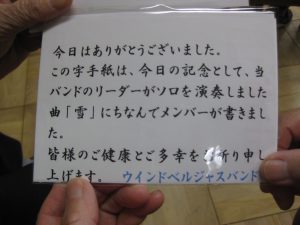 今日はありがとうございました。
この字手紙は、今日の記念として、当
バンドのリーダーがソロを演奏しました
曲「雪」にちなんでメンバーが書きまし
た。
皆様のご健康とご多幸を お祈り申し
上げます。 ウインドベルジャスバンド